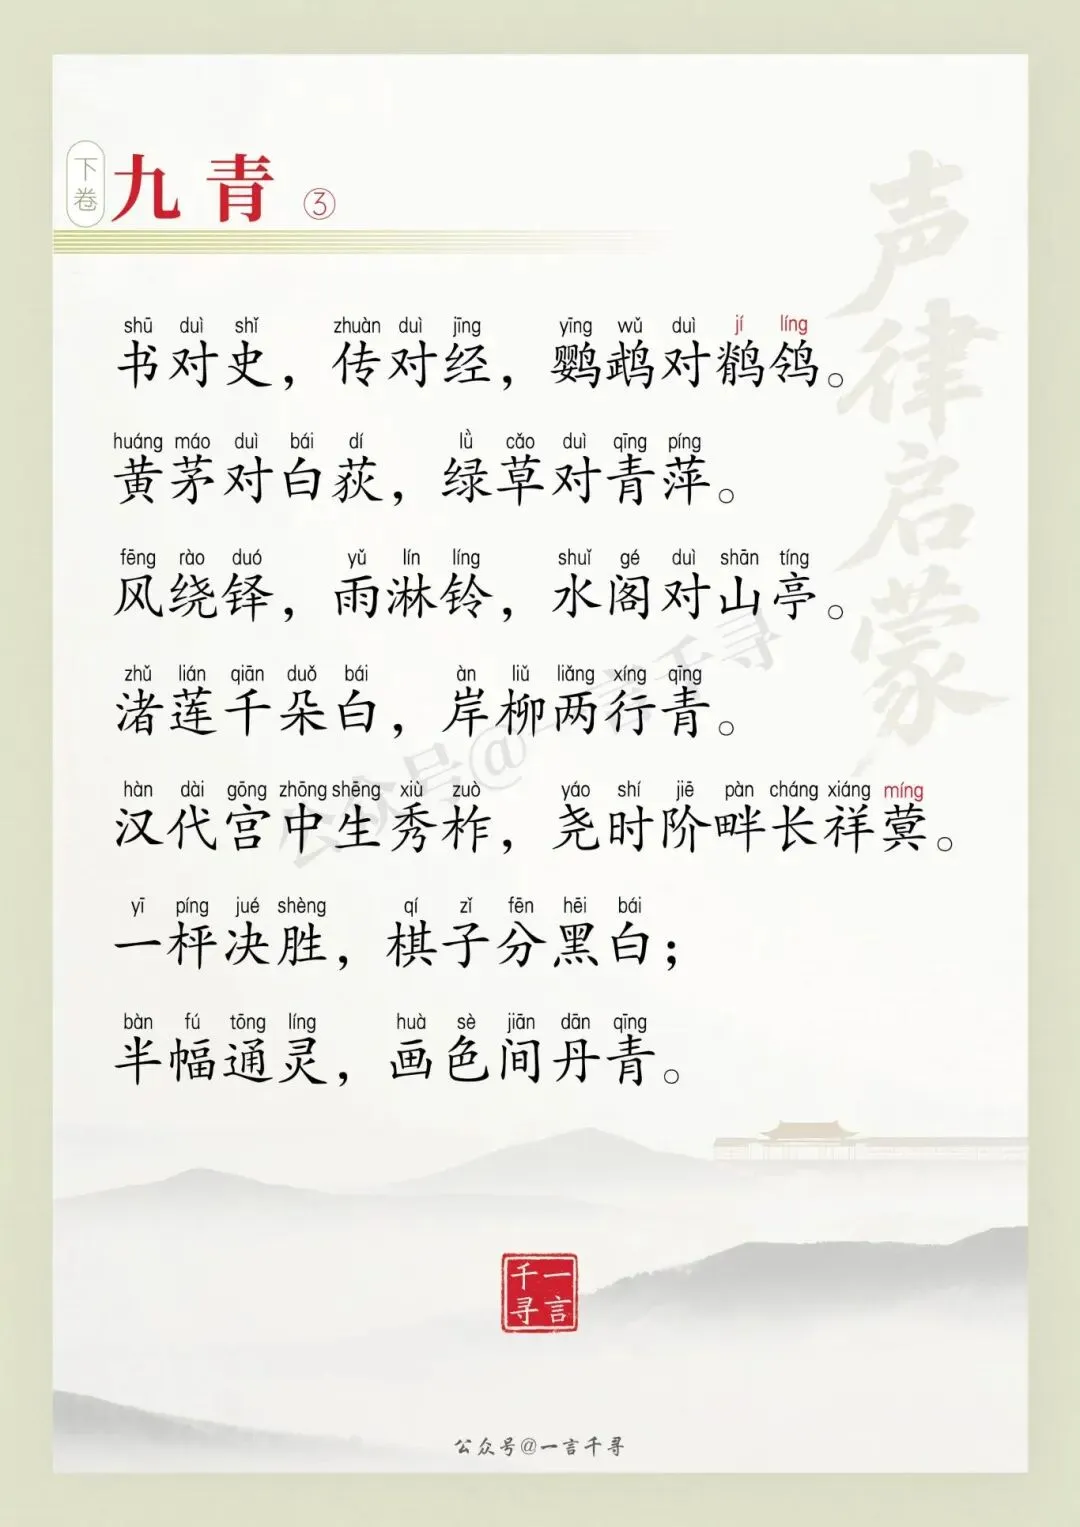 下卷
九青 ③
声律启蒙
shū duì shǐ zhuàn duì jīng yīng wǔ duì jí líng
书对史，传对经，鹦鹉对鹡鸰。
huáng máo duì bái dí lǜ cǎo duì qīng píng
黄茅对白荻，绿草对青萍。
fēng rào duó yǔ lín líng shuǐ gé duì shān tíng
风绕铎，雨淋铃，水阁对山亭。
zhǔ lián qiān duǒ bái àn liǔ liǎng xíng qīng
渚莲千朵白，岸柳两行青。
hàn dài gōng zhōng shēng xiù zuò yáo shí jiē pàn cháng xiáng míng
汉代宫中生秀柞，尧时阶畔长祥蓂。
yī píng jué shèng qí zǐ fēn hēi bái
一枰决胜，棋子分黑白；
bàn fú tōng líng huà sè jiān dān qīng
半幅通灵，画色间丹青。
公众号@一言千寻
一言千寻
公众号@一言千寻